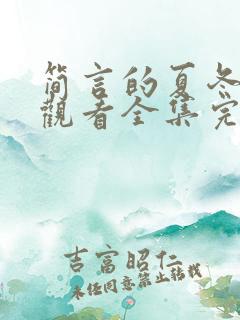 简言的夏冬
觀看全集完
吉富昭仁
未任同意禁止转载